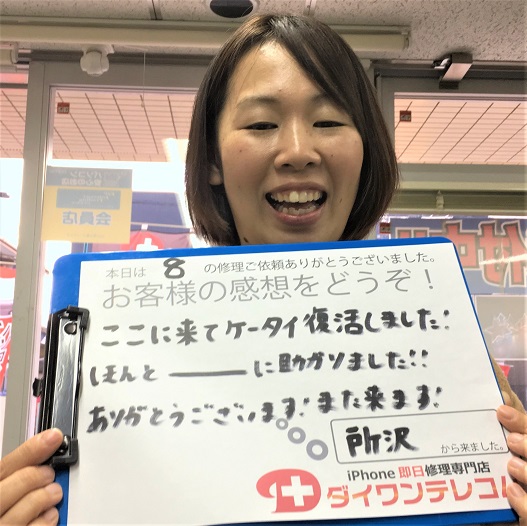 パソコン
会員店
本日は 8 の修理ご依頼ありがとうございました。
お客様の感想をどうぞ！
ここに来てケータイ復活しました！
ほんと──に助かりました!!
ありがとうございます！また来ます！
所沢 から来ました。
iPhone 即日修理専門店
ダイワンテレコム